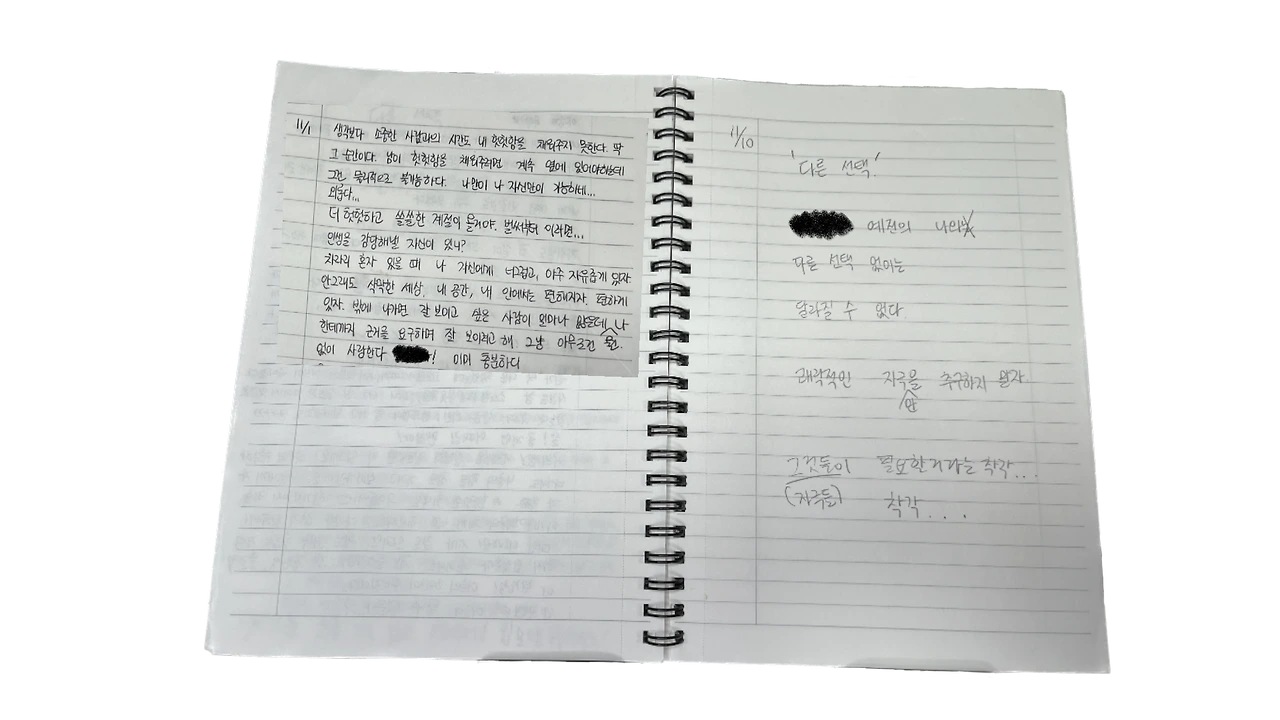 11/1
생각보다 소중한 사람과의 시간도 내 헛헛함을 채워주지 못한다. 딱
그 순간이다. 남이 헛헛함을 채워주려면 계속 옆에 있어야하는데
그건 물리적으로 불가능하다. 나만이 나 자신만이 가능하네...
외롭다...
더 헛헛하고 쓸쓸한 계절이 올거야. 벌써부터 이러면...
인생을 감당해낼 자신이 있니?
차라리 혼자 있을 때 나 자신에게 너그럽고, 아주 자유롭게 있자
안그래도 삭막한 세상, 내 공간, 내 안에서는 편해지자. 편하게
있자. 밖에 나가면 잘 보이고 싶은 사람이 얼마나 많은데 나
한테까지 근거를 요구하며 잘 보이려고 해 그냥 아무조건
없이 사랑한다 ! 이미 충분하다
11/10
'다른 선택'
예전의 나와
다른 선택 없이는
달라질 수 없다
쾌락적인 자극을 추구하지 말자
안
그것들이 필요한거라는 착각...
(자극들) 착각....